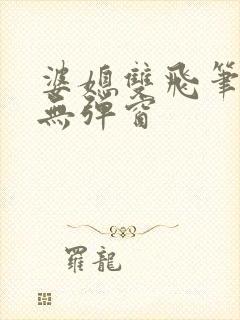 婆媳雙飛筆
無彈窗
羅龍